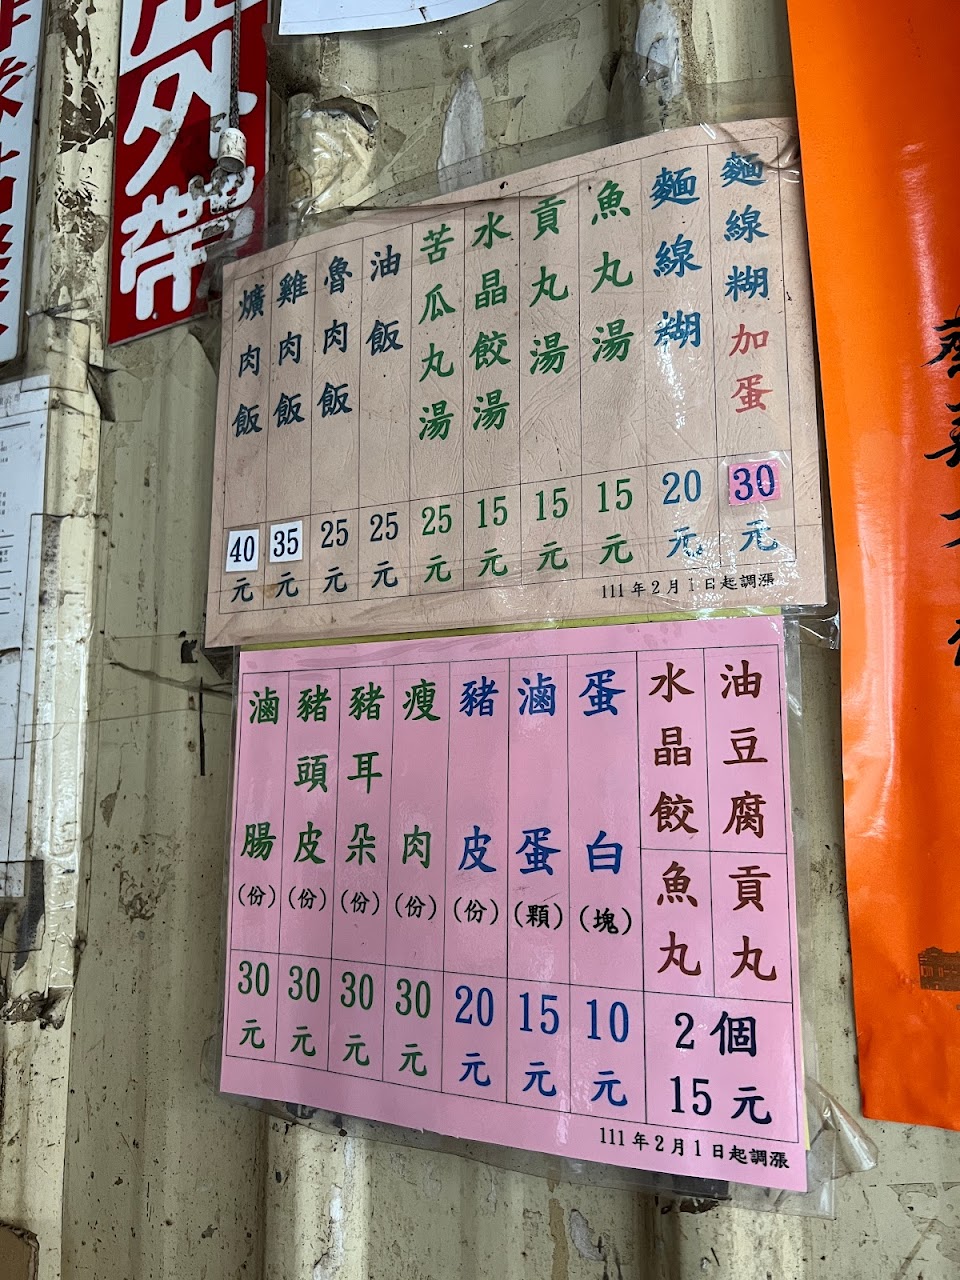 外帶
麵線糊加蛋 30元
麵線糊 20元
魚丸湯 15元
貢丸湯 15元
水晶餃湯 15元
苦瓜丸湯 25元
油飯 25元
魯肉飯 25元
雞肉飯 35元
爌肉飯 40元
111年2月1日起調漲
油豆腐
貢丸
水晶餃
魚丸
2個
15元
蛋白(塊) 10元
滷蛋(顆) 15元
豬皮(份) 20元
瘦肉(份) 30元
豬耳朵(份) 30元
豬頭皮(份) 30元
滷腸(份) 30元
111年2月1日起調漲